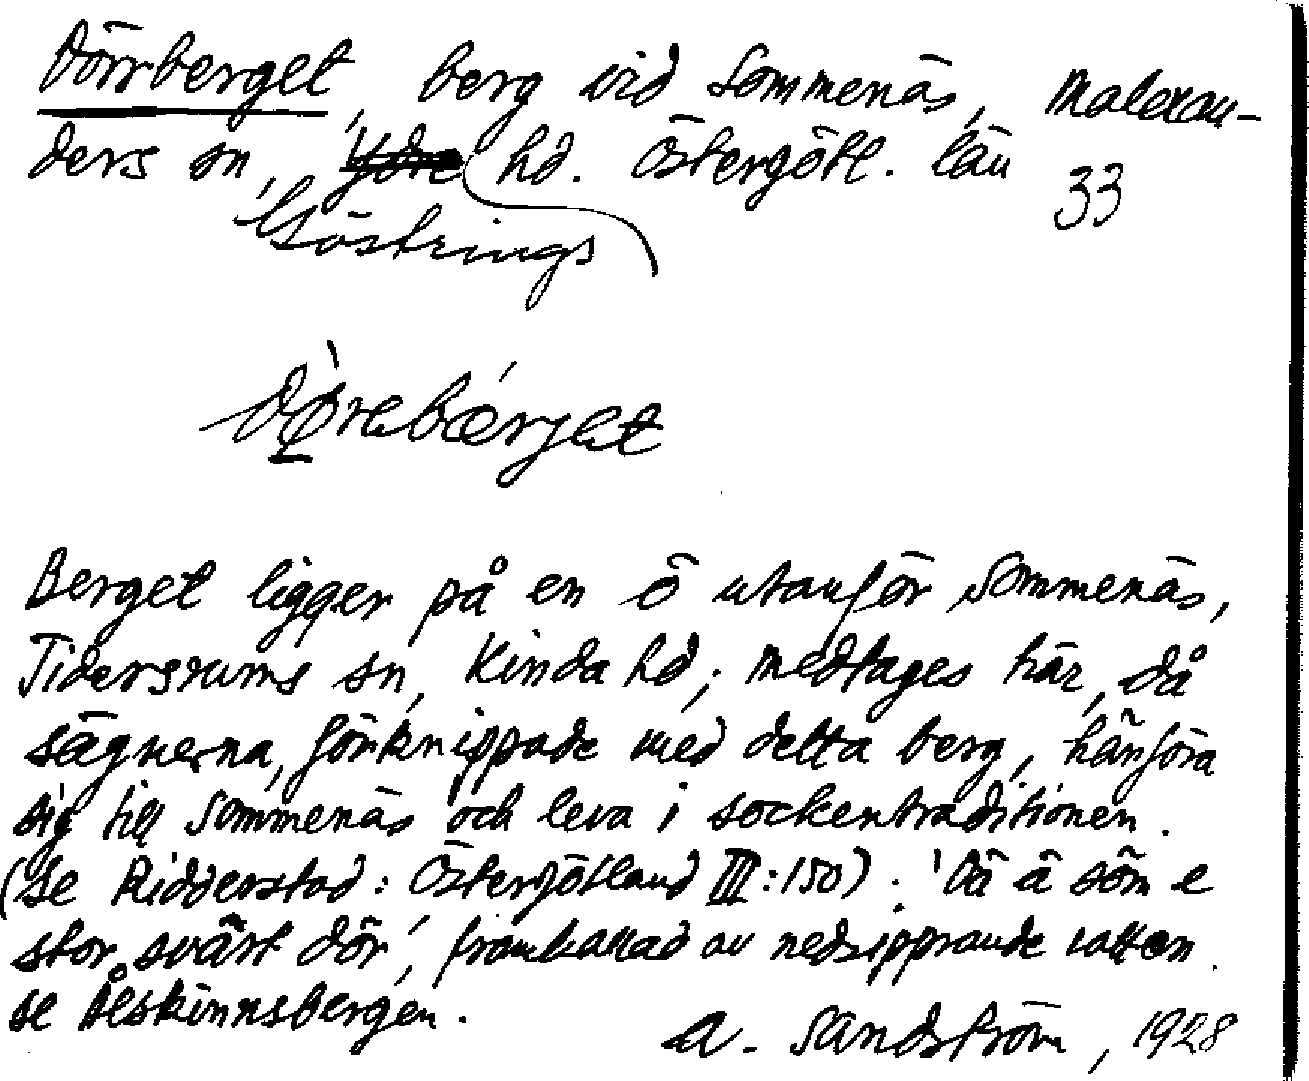 Dörrberget, berg vid Sommenäs, Malexan-
ders sn, Ydre hd. Östergötl. län 33
Göstrings
Dörebærjet
Berget ligger på en ö utanför Sommenäs,
Tidersrums sn, Kinda hd; medtages här, då
sägnerna, förknippade med detta berg, hänföra
sig till Sommenäs och leva i sockentraditionen.
(Se Ridderstad: Östergötland III:150). 'Dä ä söm e
stor svärt dör', framkallad av nedsipprande vatten.
se Ålskinnsbergen.
A. Sandström, 1928